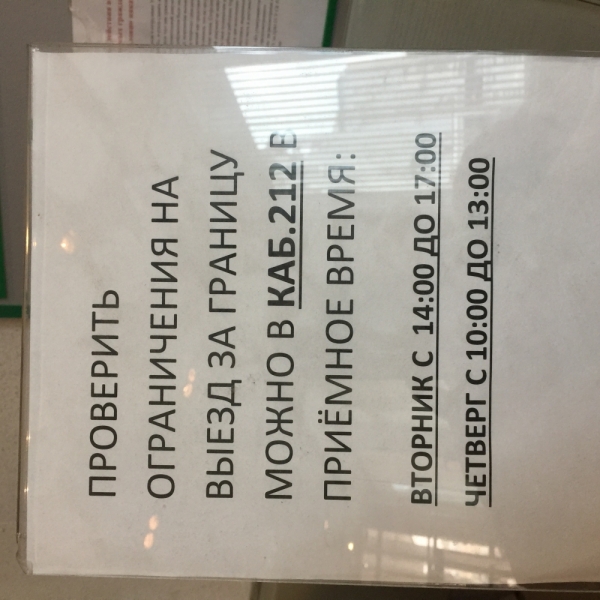 ПРОВЕРИТЬ
ОГРАНИЧЕНИЯ НА
ВЫЕЗД ЗА ГРАНИЦУ
МОЖНО В КАБ.212 В
ПРИЁМНОЕ ВРЕМЯ:
ВТОРНИК С 14:00 ДО 17:00
ЧЕТВЕРГ С 10:00 ДО 13:00